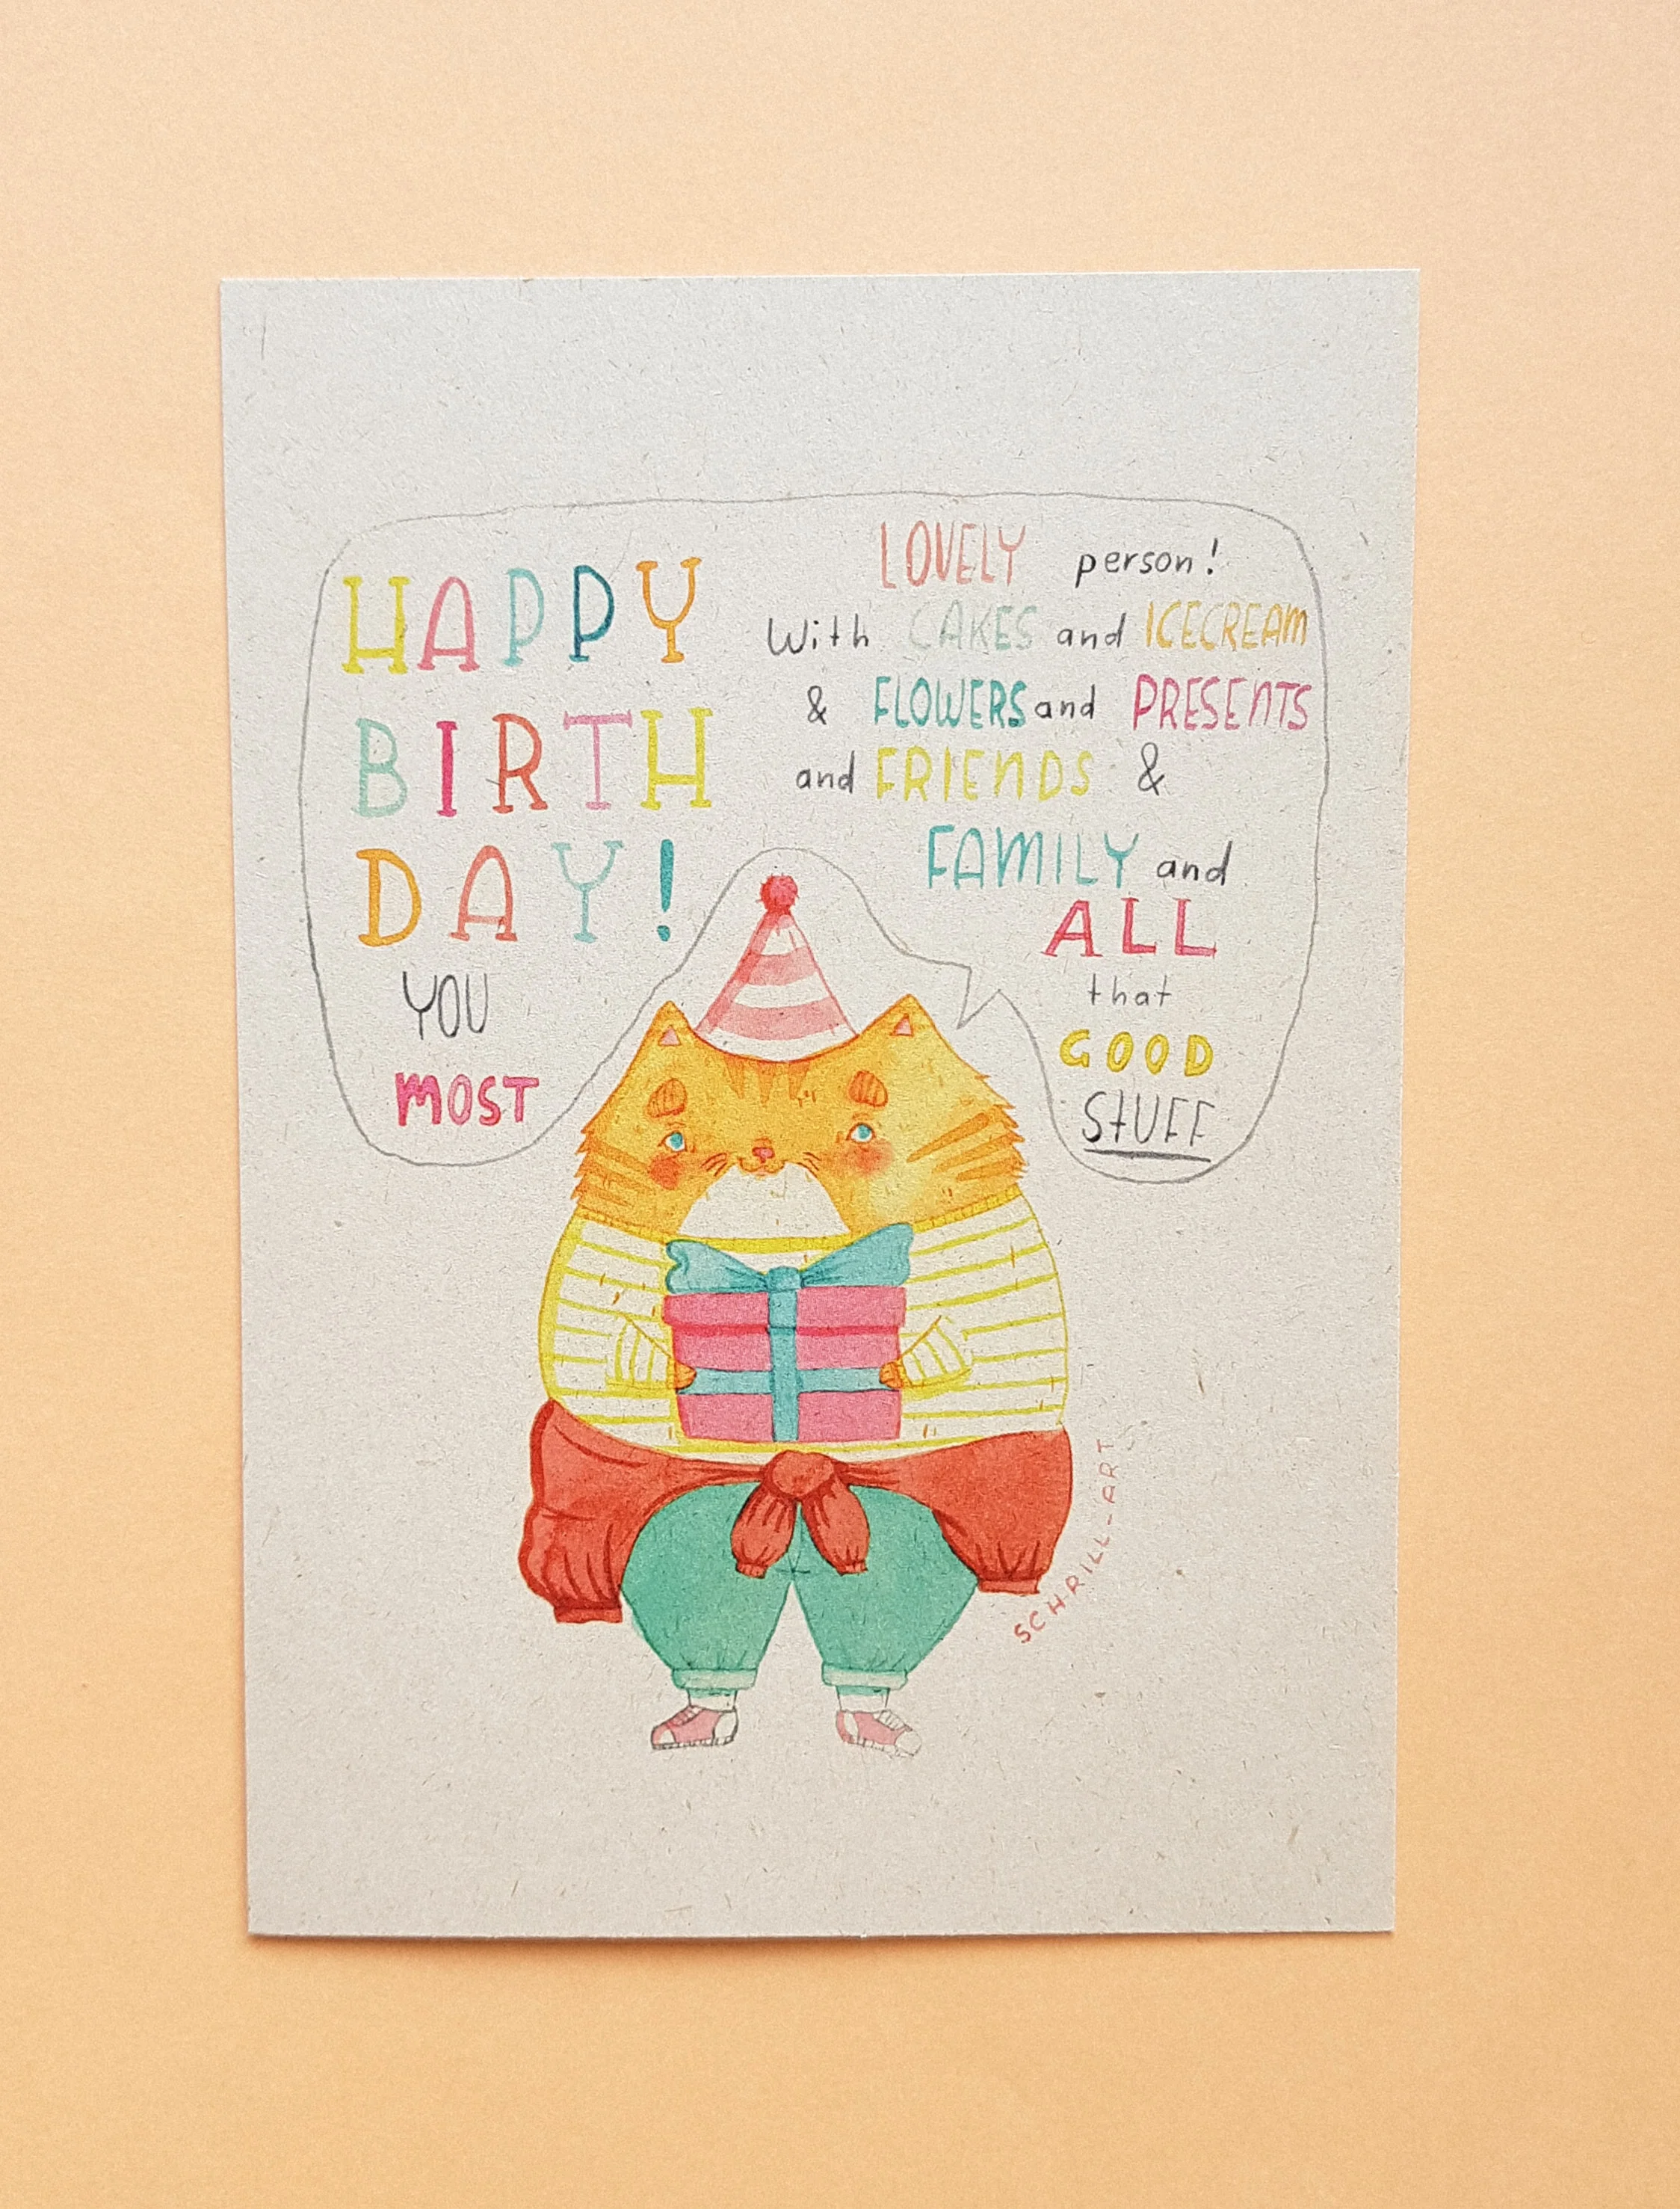 HAPPY
BIRTH
DAY!
YOU
MOST
LOVELY person!
With CAKES and ICECREAM
& FLOWERS and PRESENTS
and FRIENDS &
FAMILY and
ALL
that
GOOD
STUFF
SCHRILL-ART